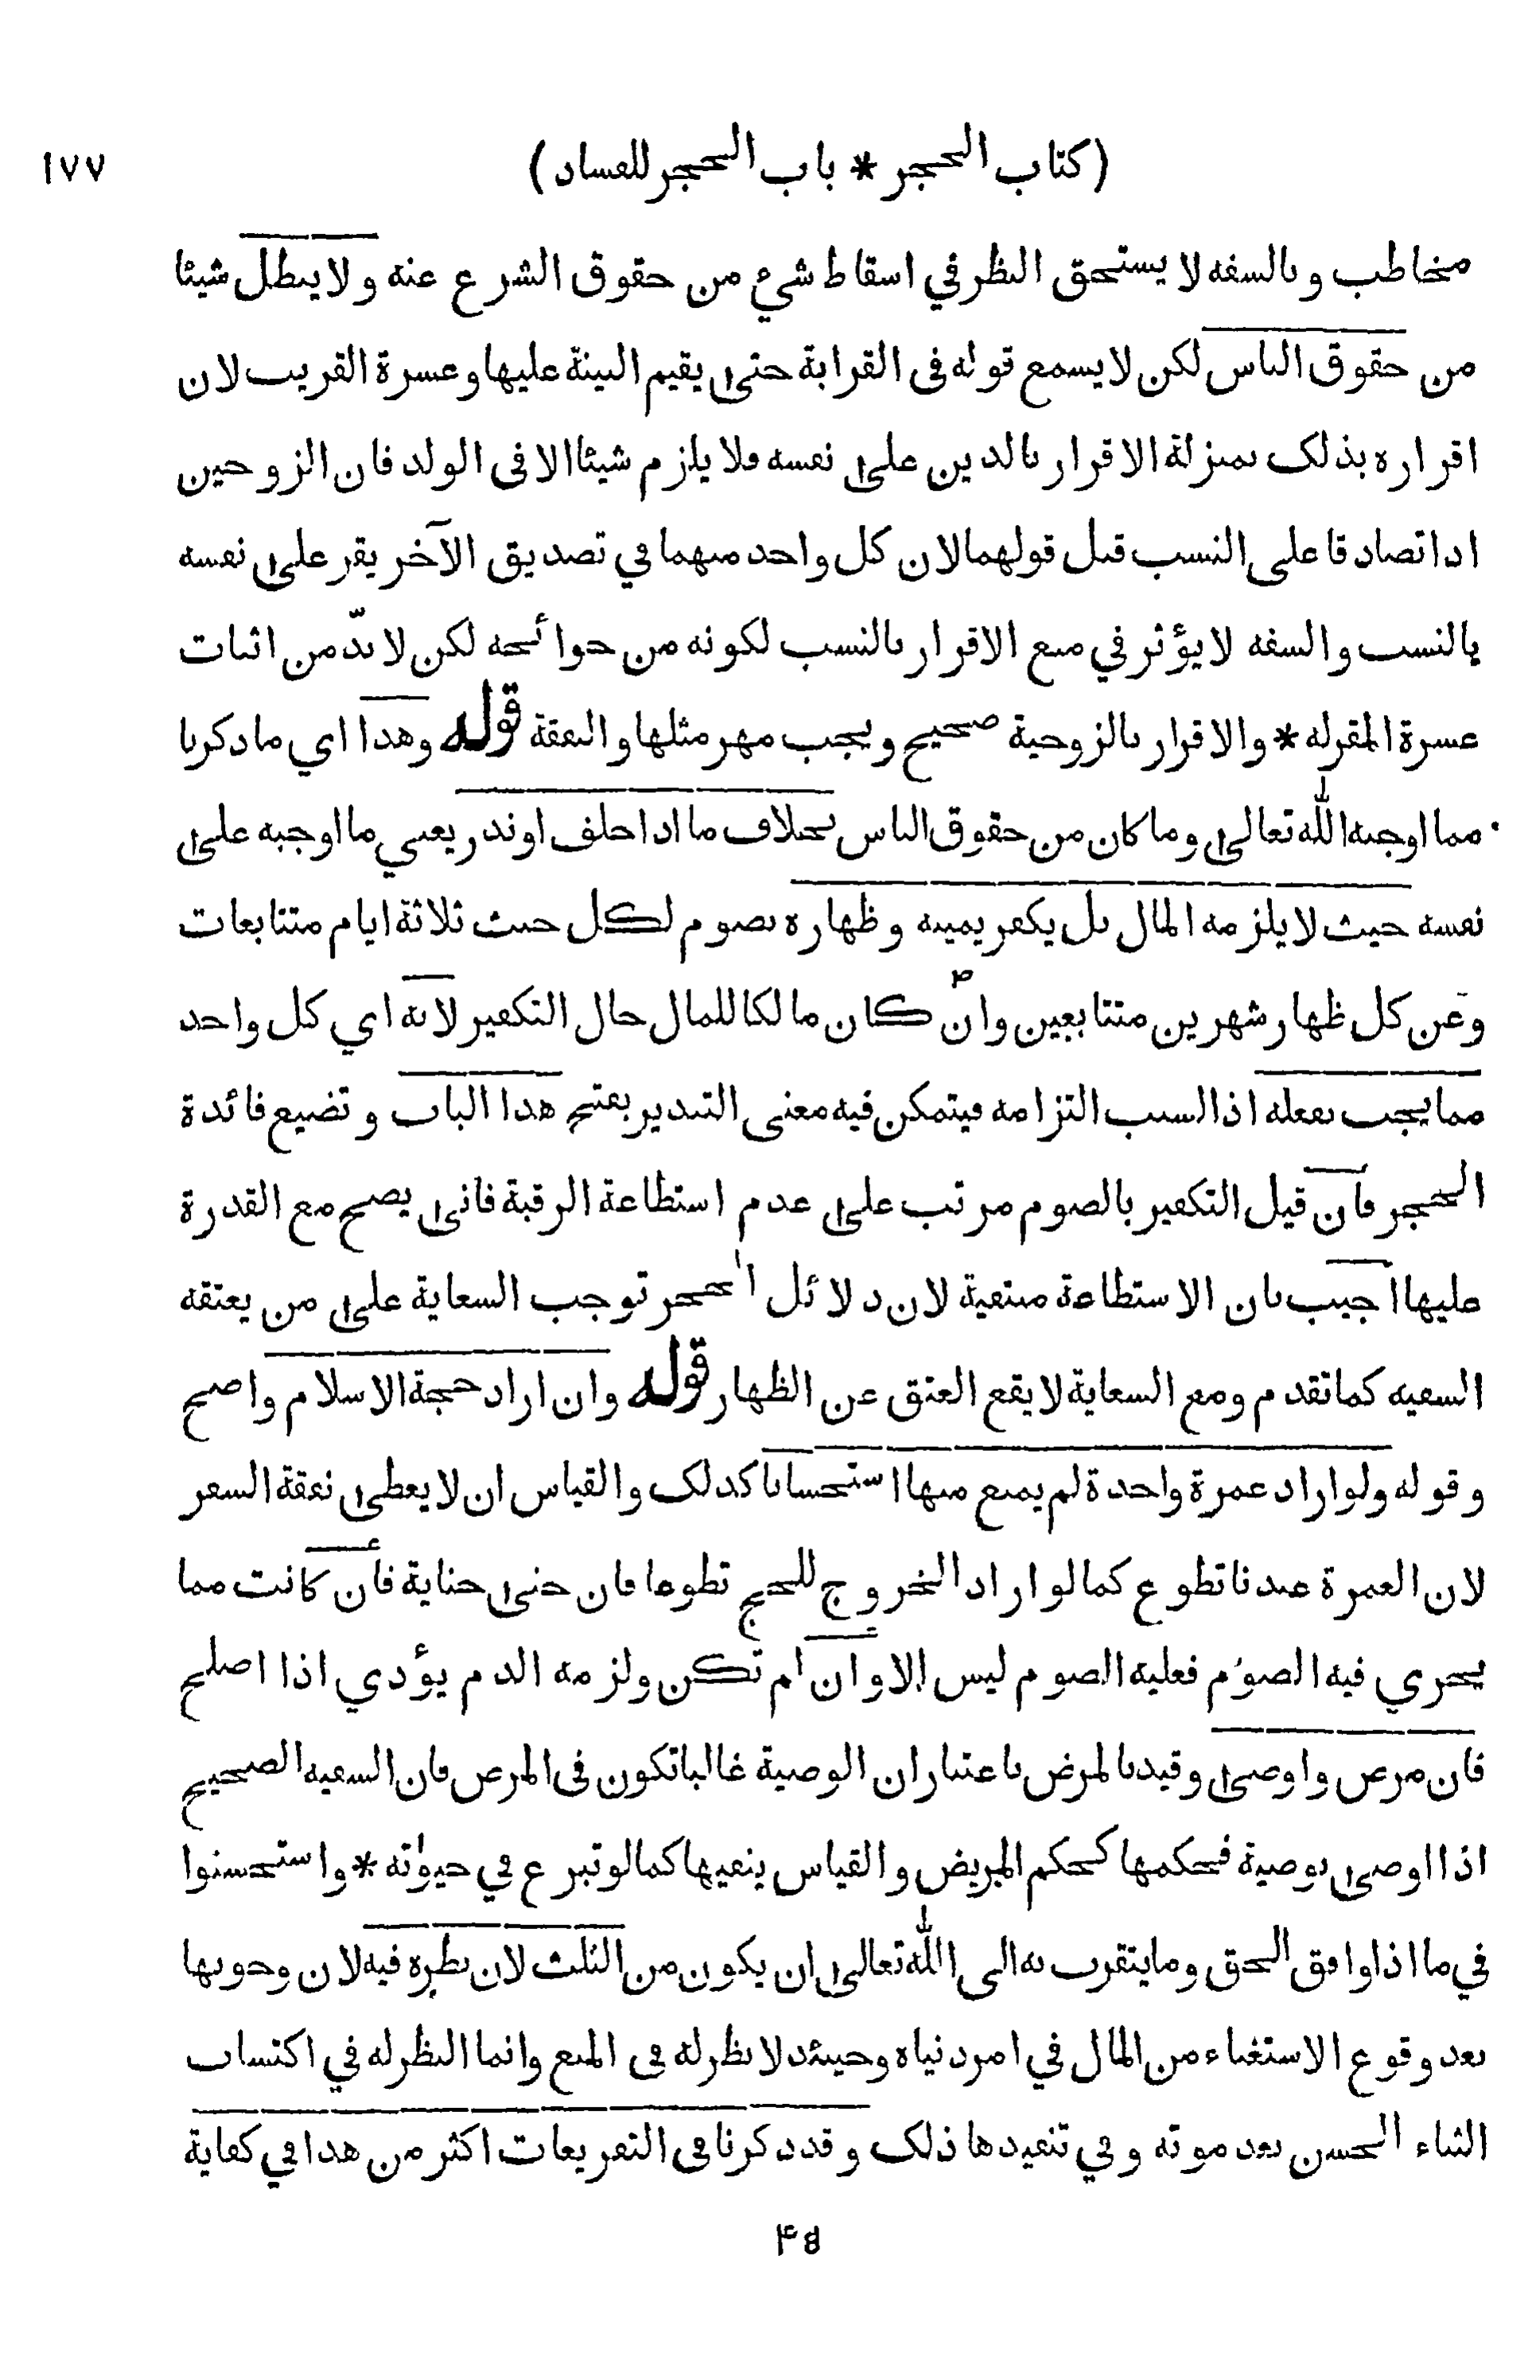 (كتاب الحجر * باب الحجر للفساد)
١٧٧
مخاطب وبالسفه لا يستحق النظر في اسقاط شيء من حقوق الشرع عنه ولا يبطل شيئا
من حقوق الناس لكن لا يسمع قوله في القرابة حتى يقيم البينة عليها وعسرة القريب لان
اقراره بذلك بمنزلة الاقرار بالدين على نفسه فلا يلزم شيئا الا في الولد فان الزوجين
اذا تصادقا على النسب قبل قولهما لان كل واحد منهما في تصديق الآخر يقر على نفسه
بالنسب والسفه لا يؤثر في منع الاقرار بالنسب لكونه من حوائجه لكن لا بدّ من اثبات
عسرة المقر له * والاقرار بالزوجية صحيح ويجب مهر مثلها والنفقة قوله وهذا اي ما ذكرنا
مما اوجبه الله تعالى وما كان من حقوق الناس بخلاف ما اذا حلف او نذر يعني ما اوجبه على
نفسه حيث لا يلزمه المال بل يكفر يمينه وظهاره بصوم لكل حنث ثلاثة ايام متتابعات
وعن كل ظهار شهرين متتابعين وان كان مالكا للمال حال التكفير لانه اي كل واحد
مما يجب بفعله اذ السبب التزامه فيتمكن فيه معنى التبذير بفتح هذا الباب وتضيع فائدة
الحجر فان قيل التكفير بالصوم مرتب على عدم استطاعة الرقبة فانى يصح مع القدرة
عليها اجيب بان الاستطاعة منتفية لان دلائل الحجر توجب السعاية على من يعتقه
السفيه كما تقدم ومع السعاية لا يقع العتق عن الظهار قوله وان اراد حجة الاسلام واضح
وقوله ولو اراد عمرة واحدة لم يمنع منها استحسانا كذلك والقياس ان لا يعطى نفقة السفر
لان العمرة عندنا تطوع كما لو اراد الخروج للحج تطوعا فان جنى جناية فان كانت مما
يجزي فيه الصوم فعليه الصوم ليس الا وان لم تكن ولزمه الدم يؤدي اذا اصلح
فان مرض واوصى وقيد بالمرض باعتبار ان الوصية غالبا تكون في المرض فان السفيه الصحيح
اذا اوصى بوصية فحكمها كحكم المريض والقياس ينفيها كما لو تبرع في حيوته * واستحسنوا
في ما اذا وافق الحق وما يتقرب به الى الله تعالى ان يكون من الثلث لان نظره فيه لان وجوبها
بعد وقوع الاستغناء من المال في امر دنياه وحينئذ لا نظر له في المنع وانما النظر له في اكتساب
الثناء الحسن بعد موته وفي تنفيذها ذلك وقد ذكرنا في التفريعات اكثر من هذا في كفاية
۴۵